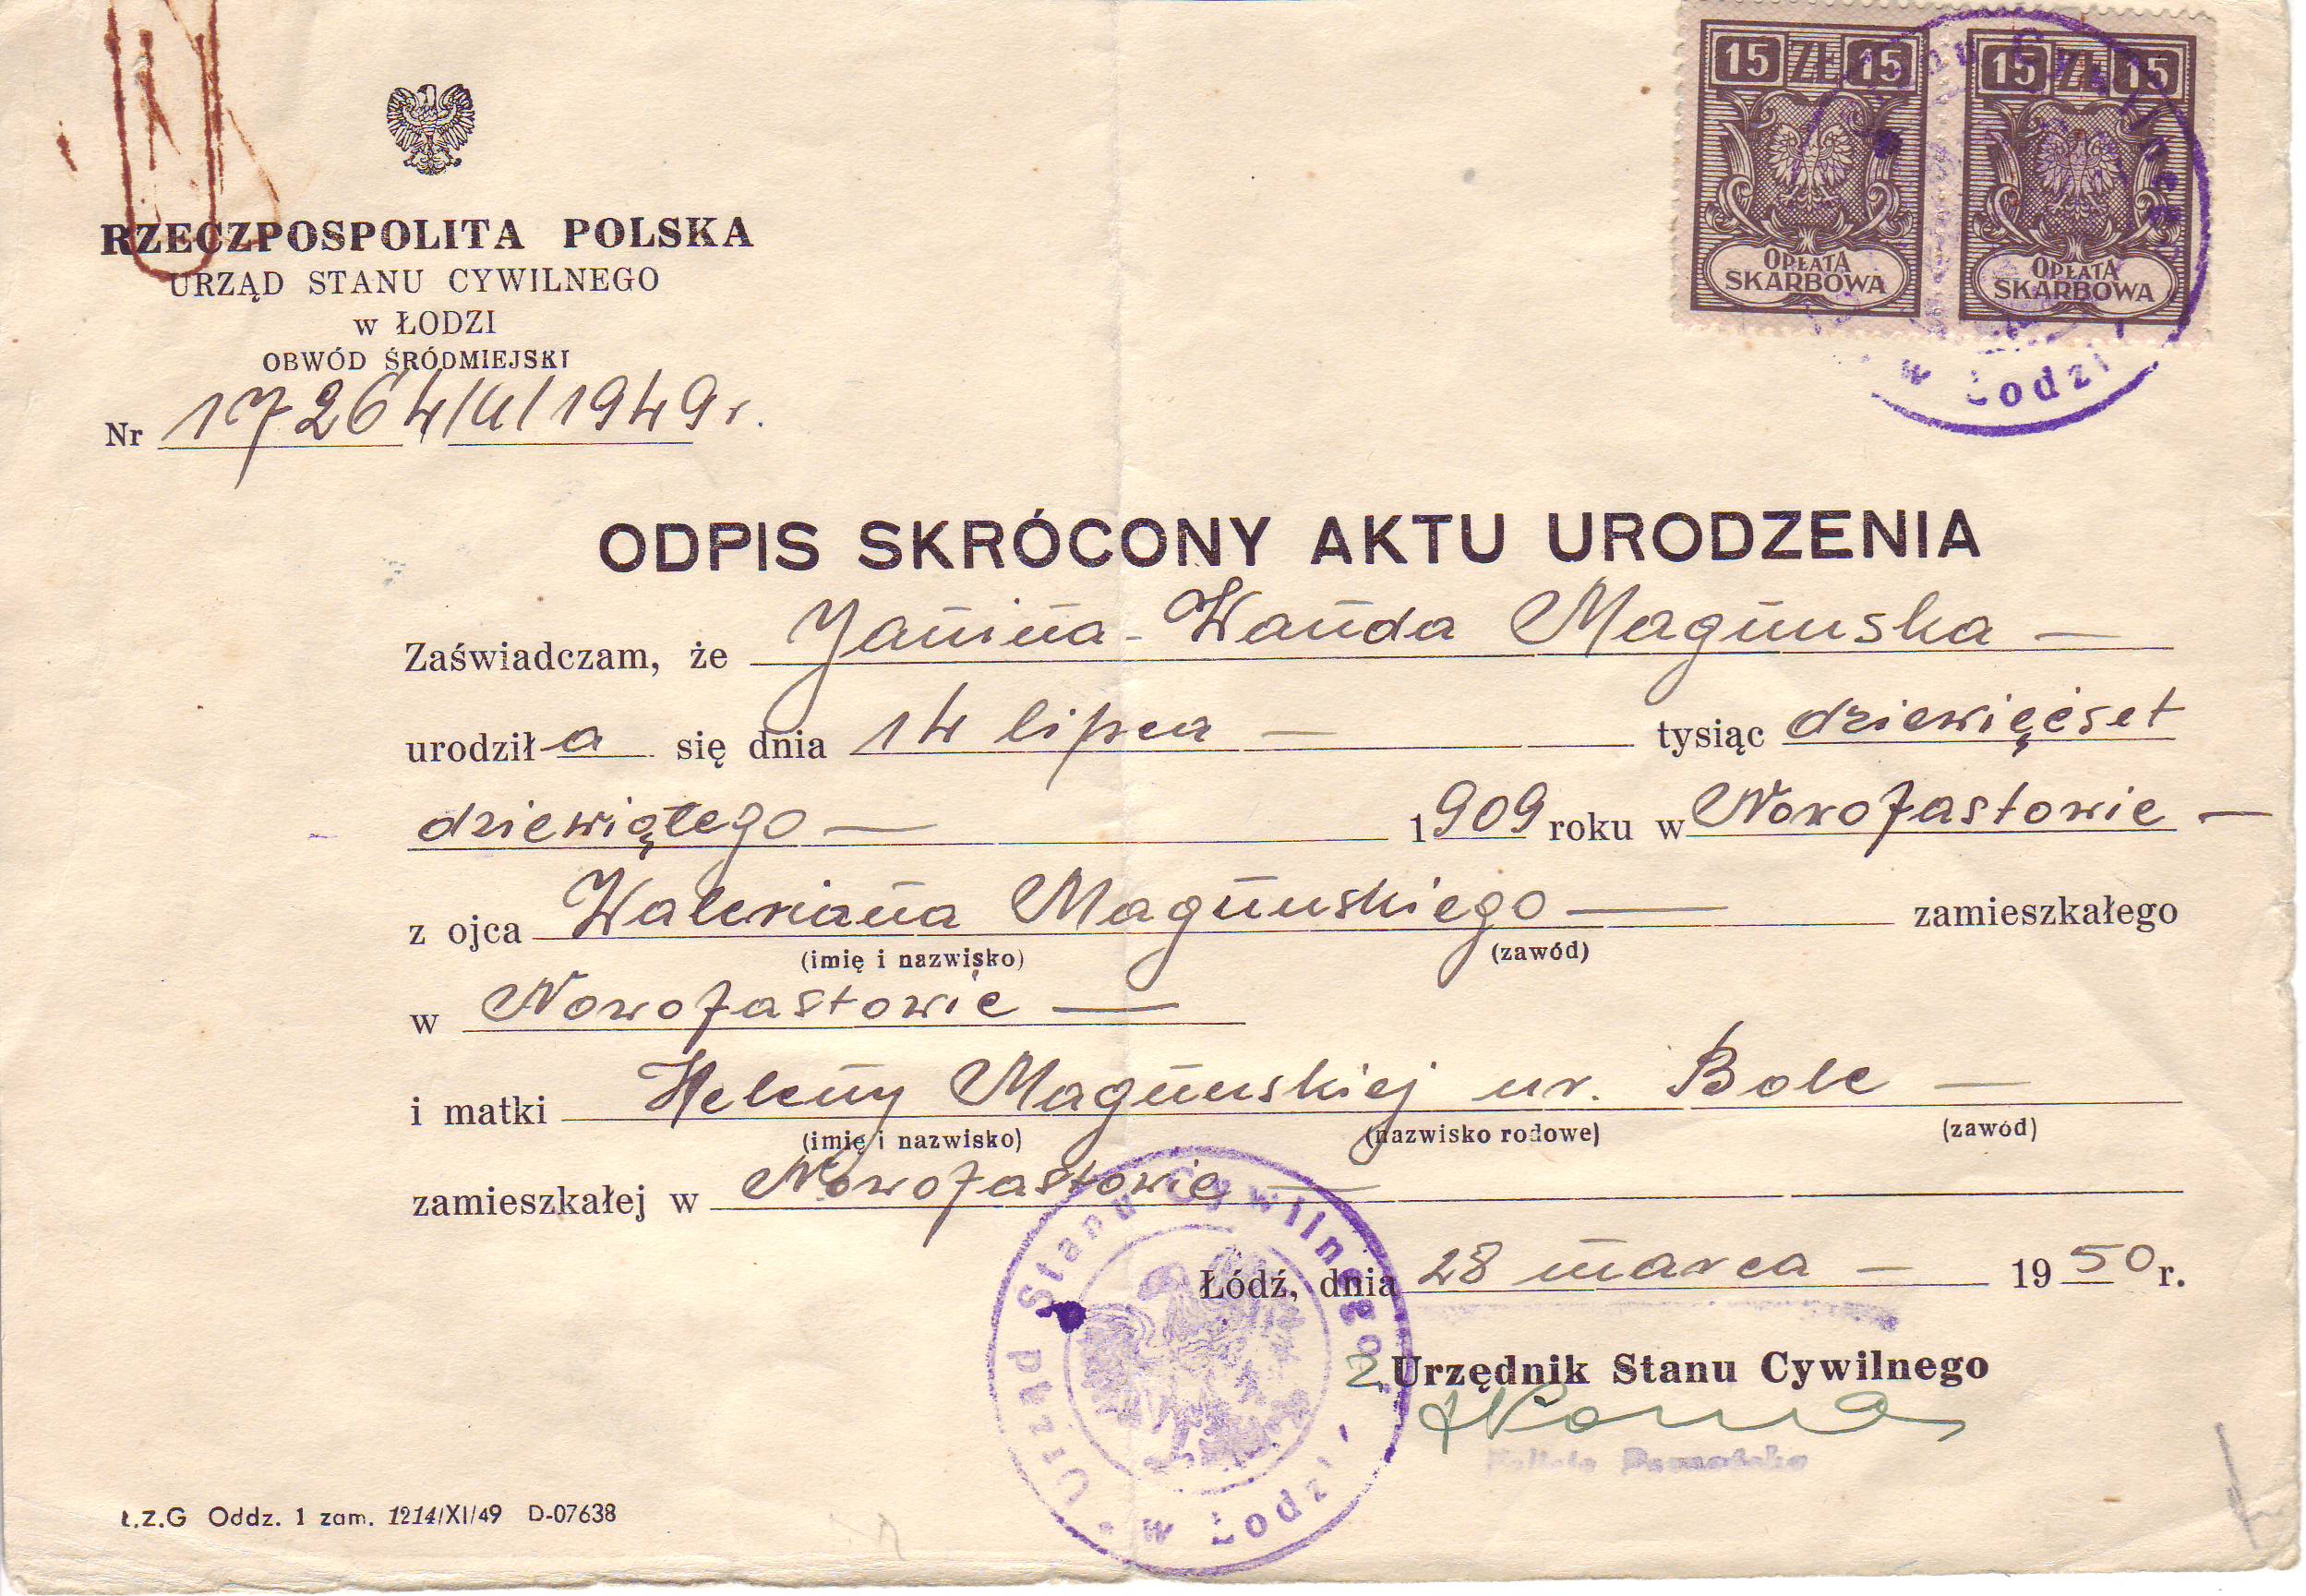 15 ZŁ 15
OPŁATA
SKARBOWA
15 ZŁ 15
OPŁATA
SKARBOWA
w Łodzi
RZECZPOSPOLITA POLSKA
URZĄD STANU CYWILNEGO
w ŁODZI
OBWÓD ŚRÓDMIEJSKI
Nr 17264/U/1949 r.
ODPIS SKRÓCONY AKTU URODZENIA
Zaświadczam, że Janina-Wanda Magnuska —
urodził a się dnia 14 lipca — tysiąc dziewięćset
dziewiątego — 1909 roku w Nowojastowie —
z ojca Waleriana Magnuskiego — zamieszkałego
(imię i nazwisko) (zawód)
w Nowojastowie —
i matki Heleny Magnuskiej ur. Bole —
(imię i nazwisko) (nazwisko rodowe) (zawód)
zamieszkałej w Nowojastowie —
Łódź, dnia 28 marca — 1950 r.
Urząd Stanu Cywilnego
w Łodzi
z. Urzędnik Stanu Cywilnego
Ł.Z.G Oddz. 1 zam. 1214/XI/49 D-07638